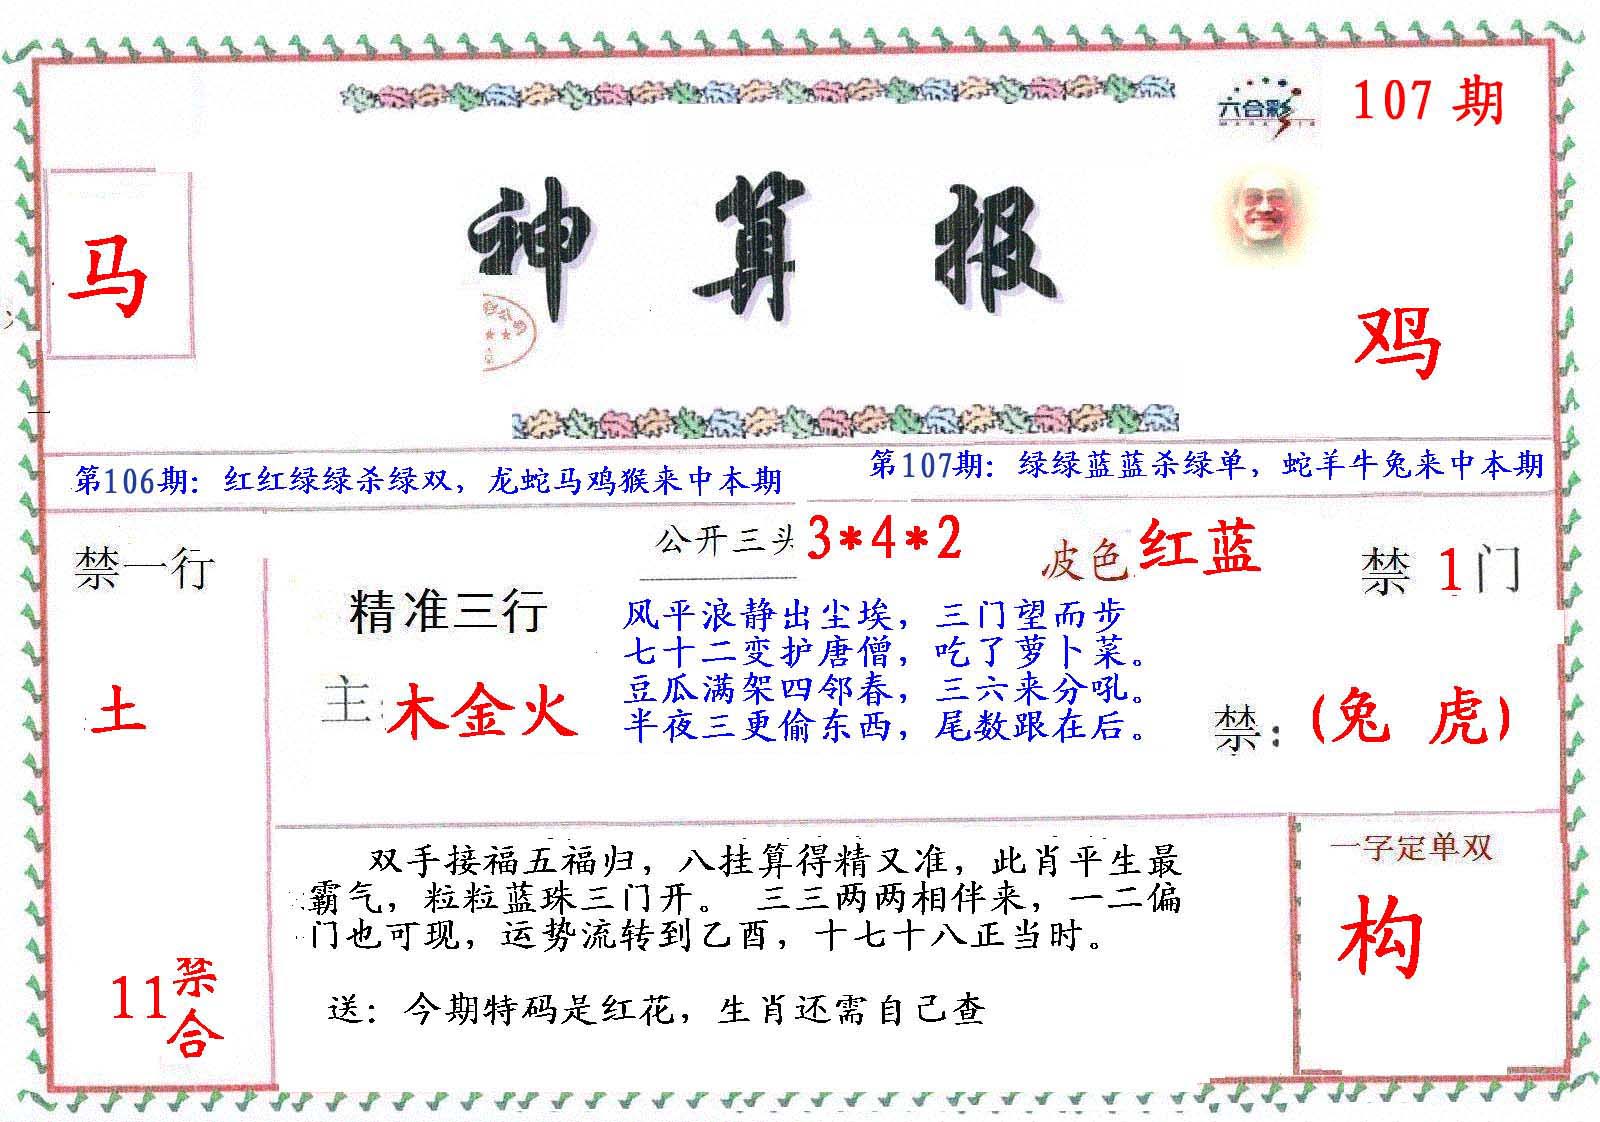 六合彩
107 期
神 算 报
马
鸡
第106期：红红绿绿杀绿双，龙蛇马鸡猴来中本期
第107期：绿绿蓝蓝杀绿单，蛇羊牛兔来中本期
禁一行
土
11禁
合
公开三头 3*4*2
皮色 红蓝
禁 1 门
精准三行
主：木金火
风平浪静出尘埃，三门望而步
七十二变护唐僧，吃了萝卜菜。
豆瓜满架四邻春，三六来分吼。
半夜三更偷东西，尾数跟在后。
禁：（兔 虎）
双手接福五福归，八挂算得精又准，此肖平生最
霸气，粒粒蓝珠三门开。 三三两两相伴来，一二偏
门也可现，运势流转到乙酉，十七十八正当时。
送：今期特码是红花，生肖还需自己查
一字定单双
构